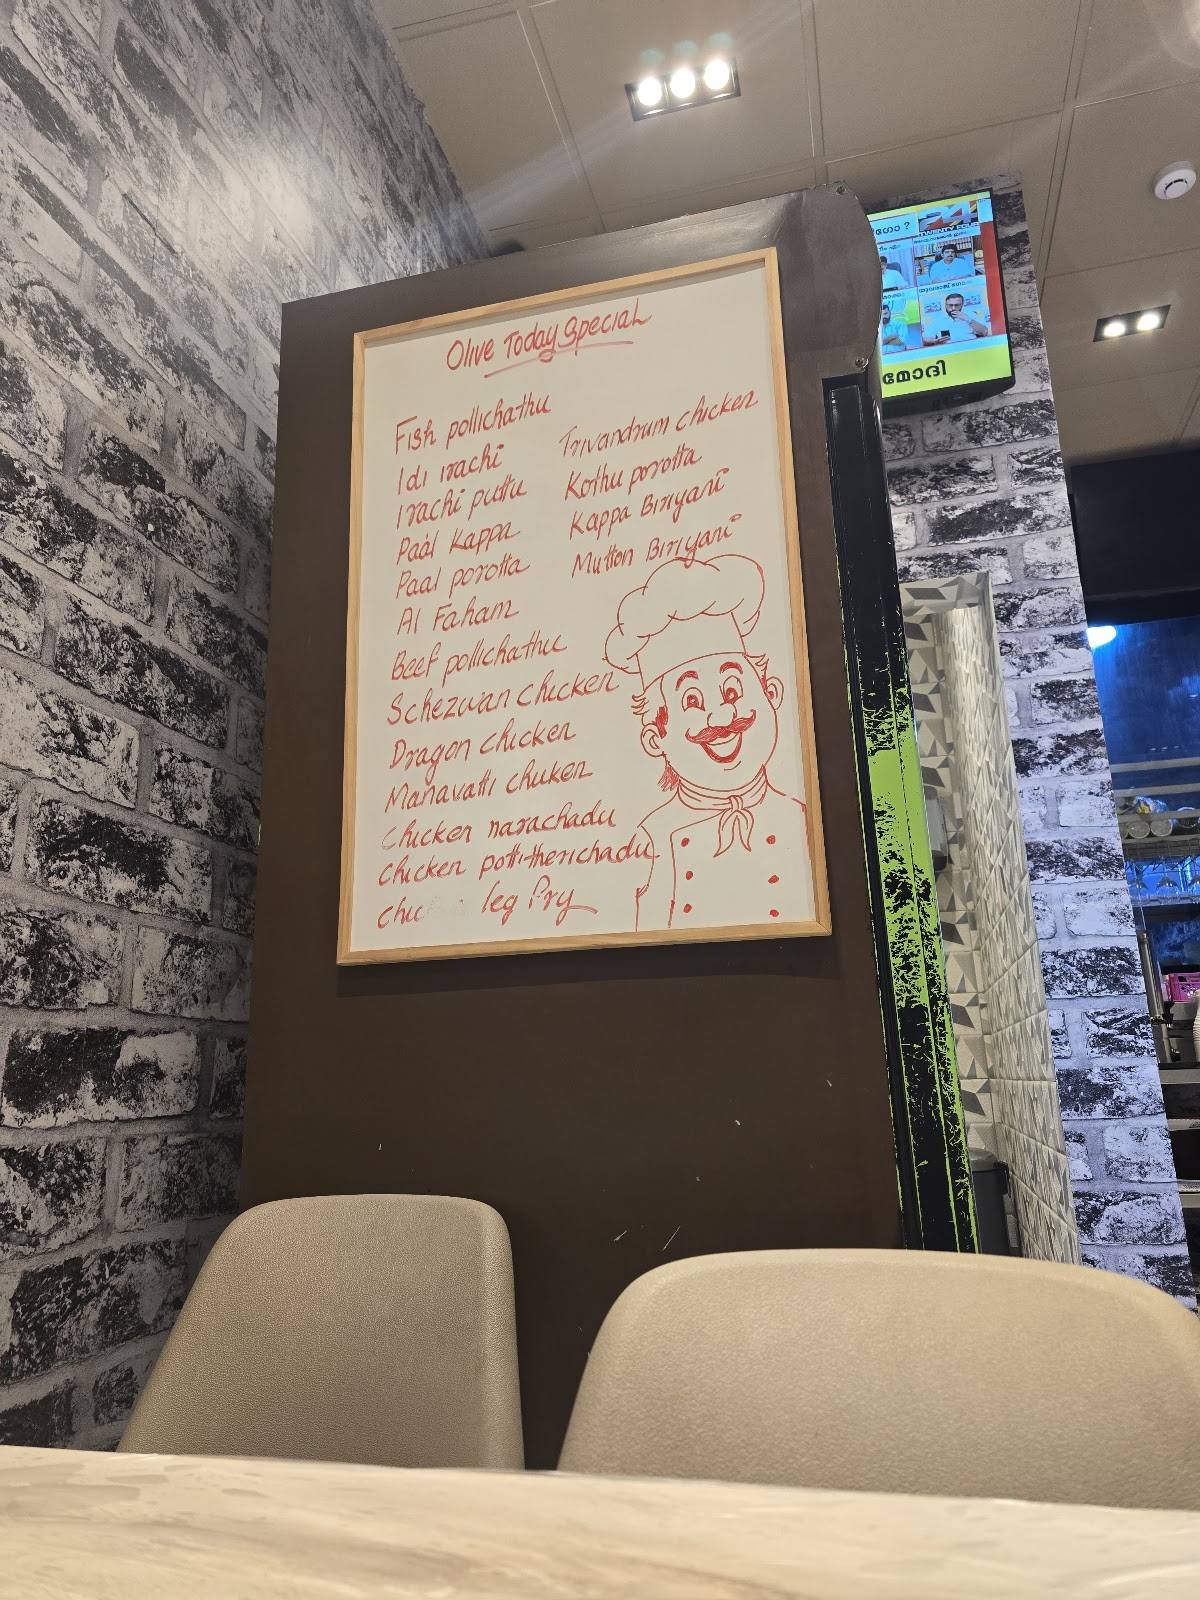 Olive Today Special
Fish pollichathu
Idi irachi
Irachi puttu
Paal Kappa
Paal porotta
Al Faham
Beef pollichathu
Schezwan chicken
Dragon chicken
Manavatti chicken
Chicken narachadu
Chicken potti-therichadu
Chic leg Pry
Trivandrum chicken
Kothu porotta
Kappa Biriyani
Mutton Biriyani
ഗോ ?
24
TWENTY FOUR
മോദി